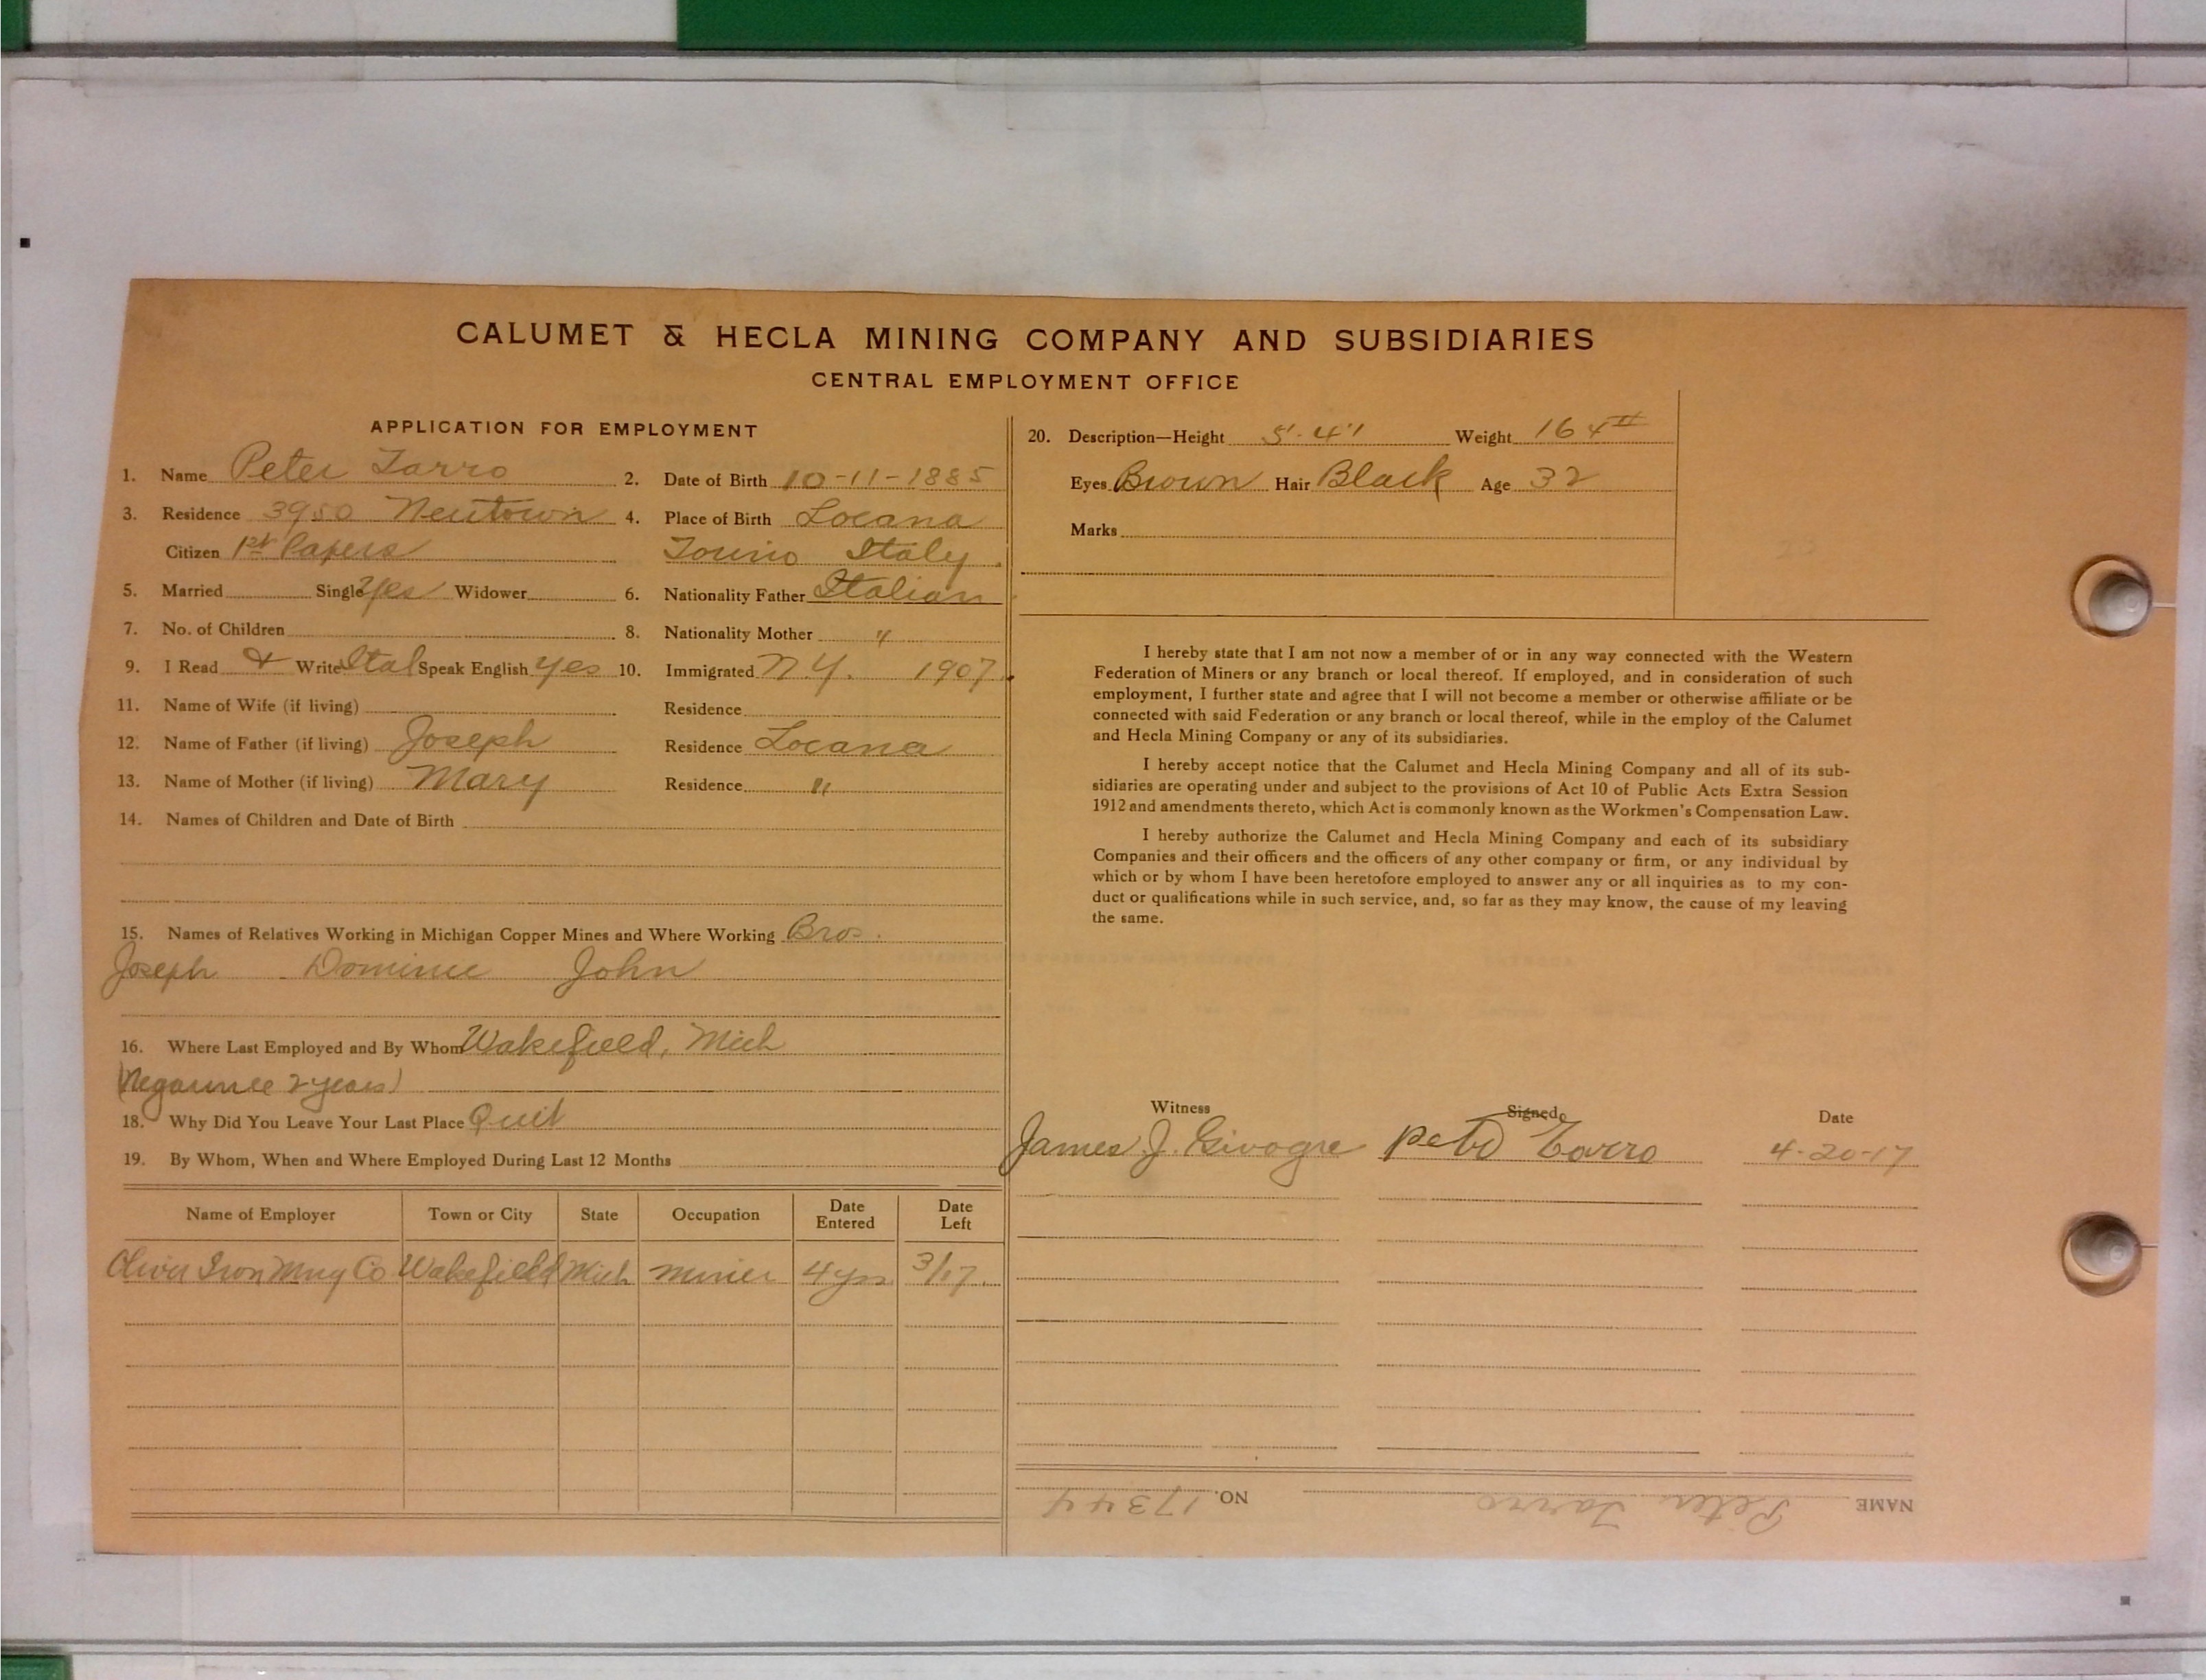 CALUMET & HECLA MINING COMPANY AND SUBSIDIARIES
CENTRAL EMPLOYMENT OFFICE
APPLICATION FOR EMPLOYMENT
1. Name Peter Tarro 2. Date of Birth 10-11-1885
3. Residence 3950 Newtown 4. Place of Birth Locana
Citizen 1st Papers Torino Italy.
5. Married Single Yes Widower 6. Nationality Father Italian
7. No. of Children 8. Nationality Mother "
9. I Read & Write Ital Speak English yes 10. Immigrated N.Y. 1907.
11. Name of Wife (if living) Residence
12. Name of Father (if living) Joseph Residence Locana
13. Name of Mother (if living) Mary Residence "
14. Names of Children and Date of Birth
15. Names of Relatives Working in Michigan Copper Mines and Where Working Bros.
Joseph Dominic John
16. Where Last Employed and By Whom Wakefield, Mich
(Negaunee 2 years)
18. Why Did You Leave Your Last Place Quit
19. By Whom, When and Where Employed During Last 12 Months
Name of Employer Town or City State Occupation Date Entered Date Left
Oliver Iron Mng Co Wakefield Mich miner 4 yrs 3/17.
20. Description—Height 5'-4" Weight 164#
Eyes Brown Hair Black Age 32
Marks
I hereby state that I am not now a member of or in any way connected with the Western
Federation of Miners or any branch or local thereof. If employed, and in consideration of such
employment, I further state and agree that I will not become a member or otherwise affiliate or be
connected with said Federation or any branch or local thereof, while in the employ of the Calumet
and Hecla Mining Company or any of its subsidiaries.
I hereby accept notice that the Calumet and Hecla Mining Company and all of its sub-
sidiaries are operating under and subject to the provisions of Act 10 of Public Acts Extra Session
1912 and amendments thereto, which Act is commonly known as the Workmen's Compensation Law.
I hereby authorize the Calumet and Hecla Mining Company and each of its subsidiary
Companies and their officers and the officers of any other company or firm, or any individual by
which or by whom I have been heretofore employed to answer any or all inquiries as to my con-
duct or qualifications while in such service, and, so far as they may know, the cause of my leaving
the same.
Witness Signed Date
James J. Givogre Peter Tarro 4-20-17
NAME Peter Tarro NO. 17344